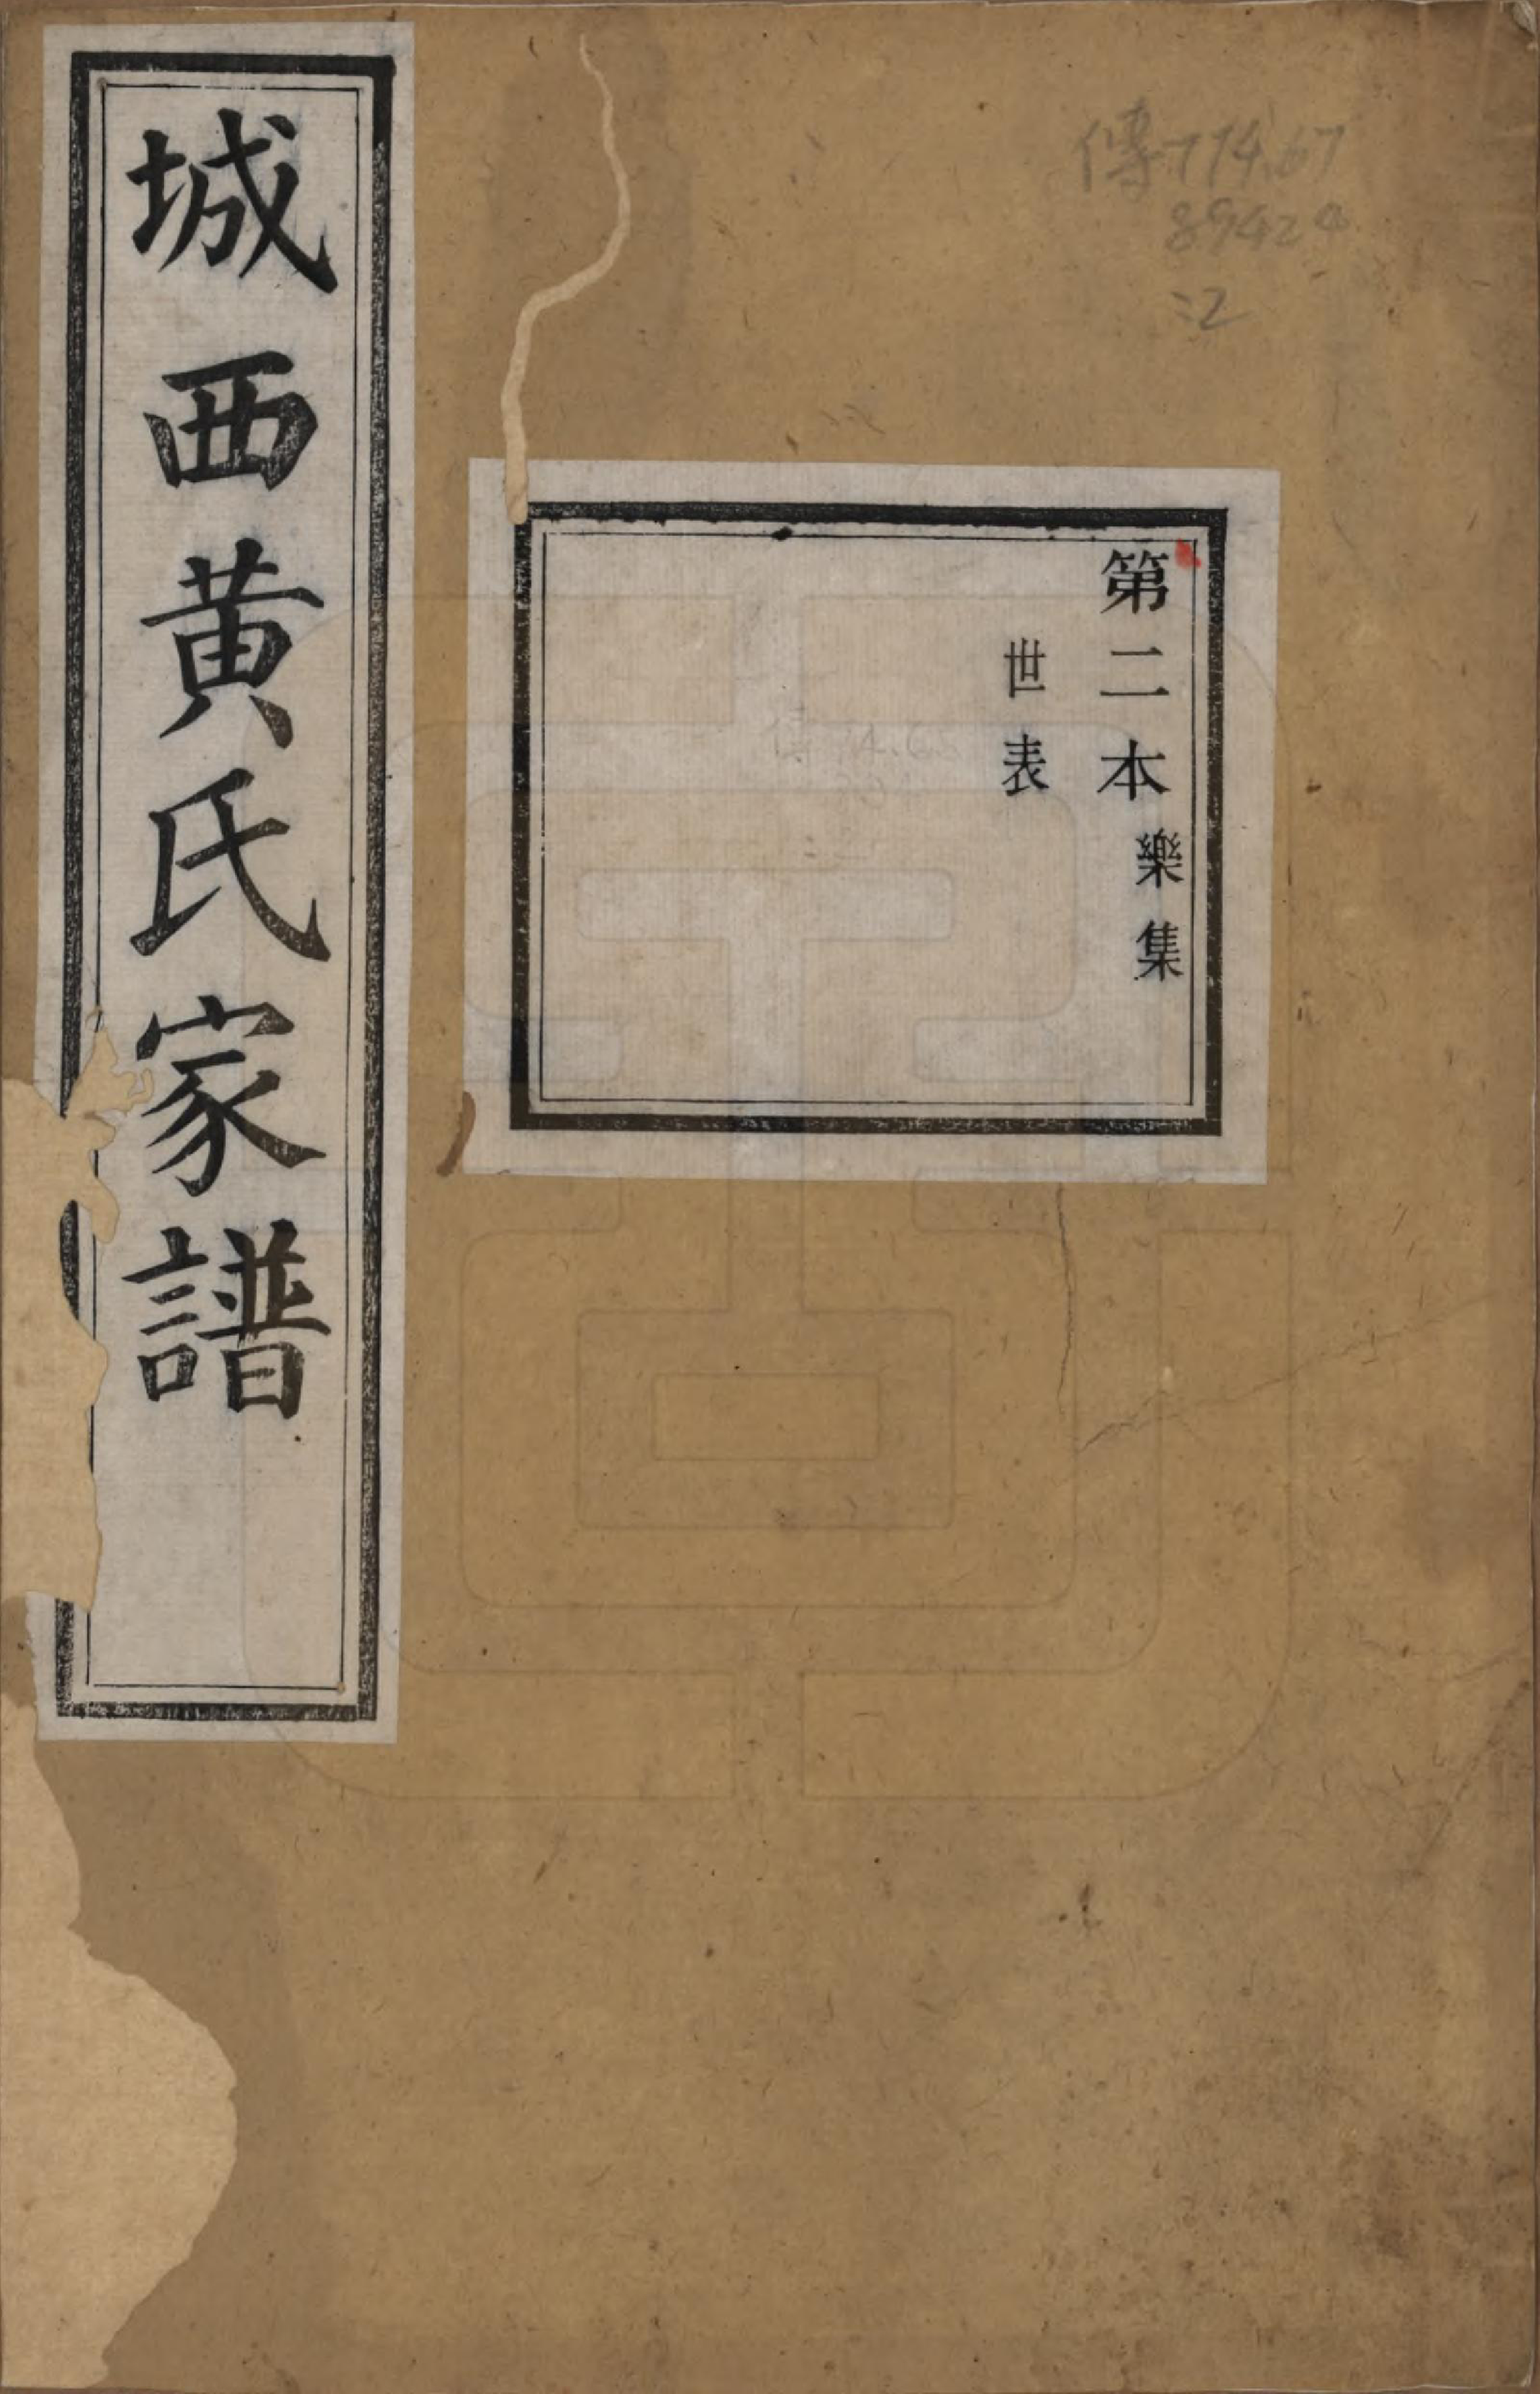 城西黄氏家譜
傳774.67
89424
:2
第二本 樂集
世表